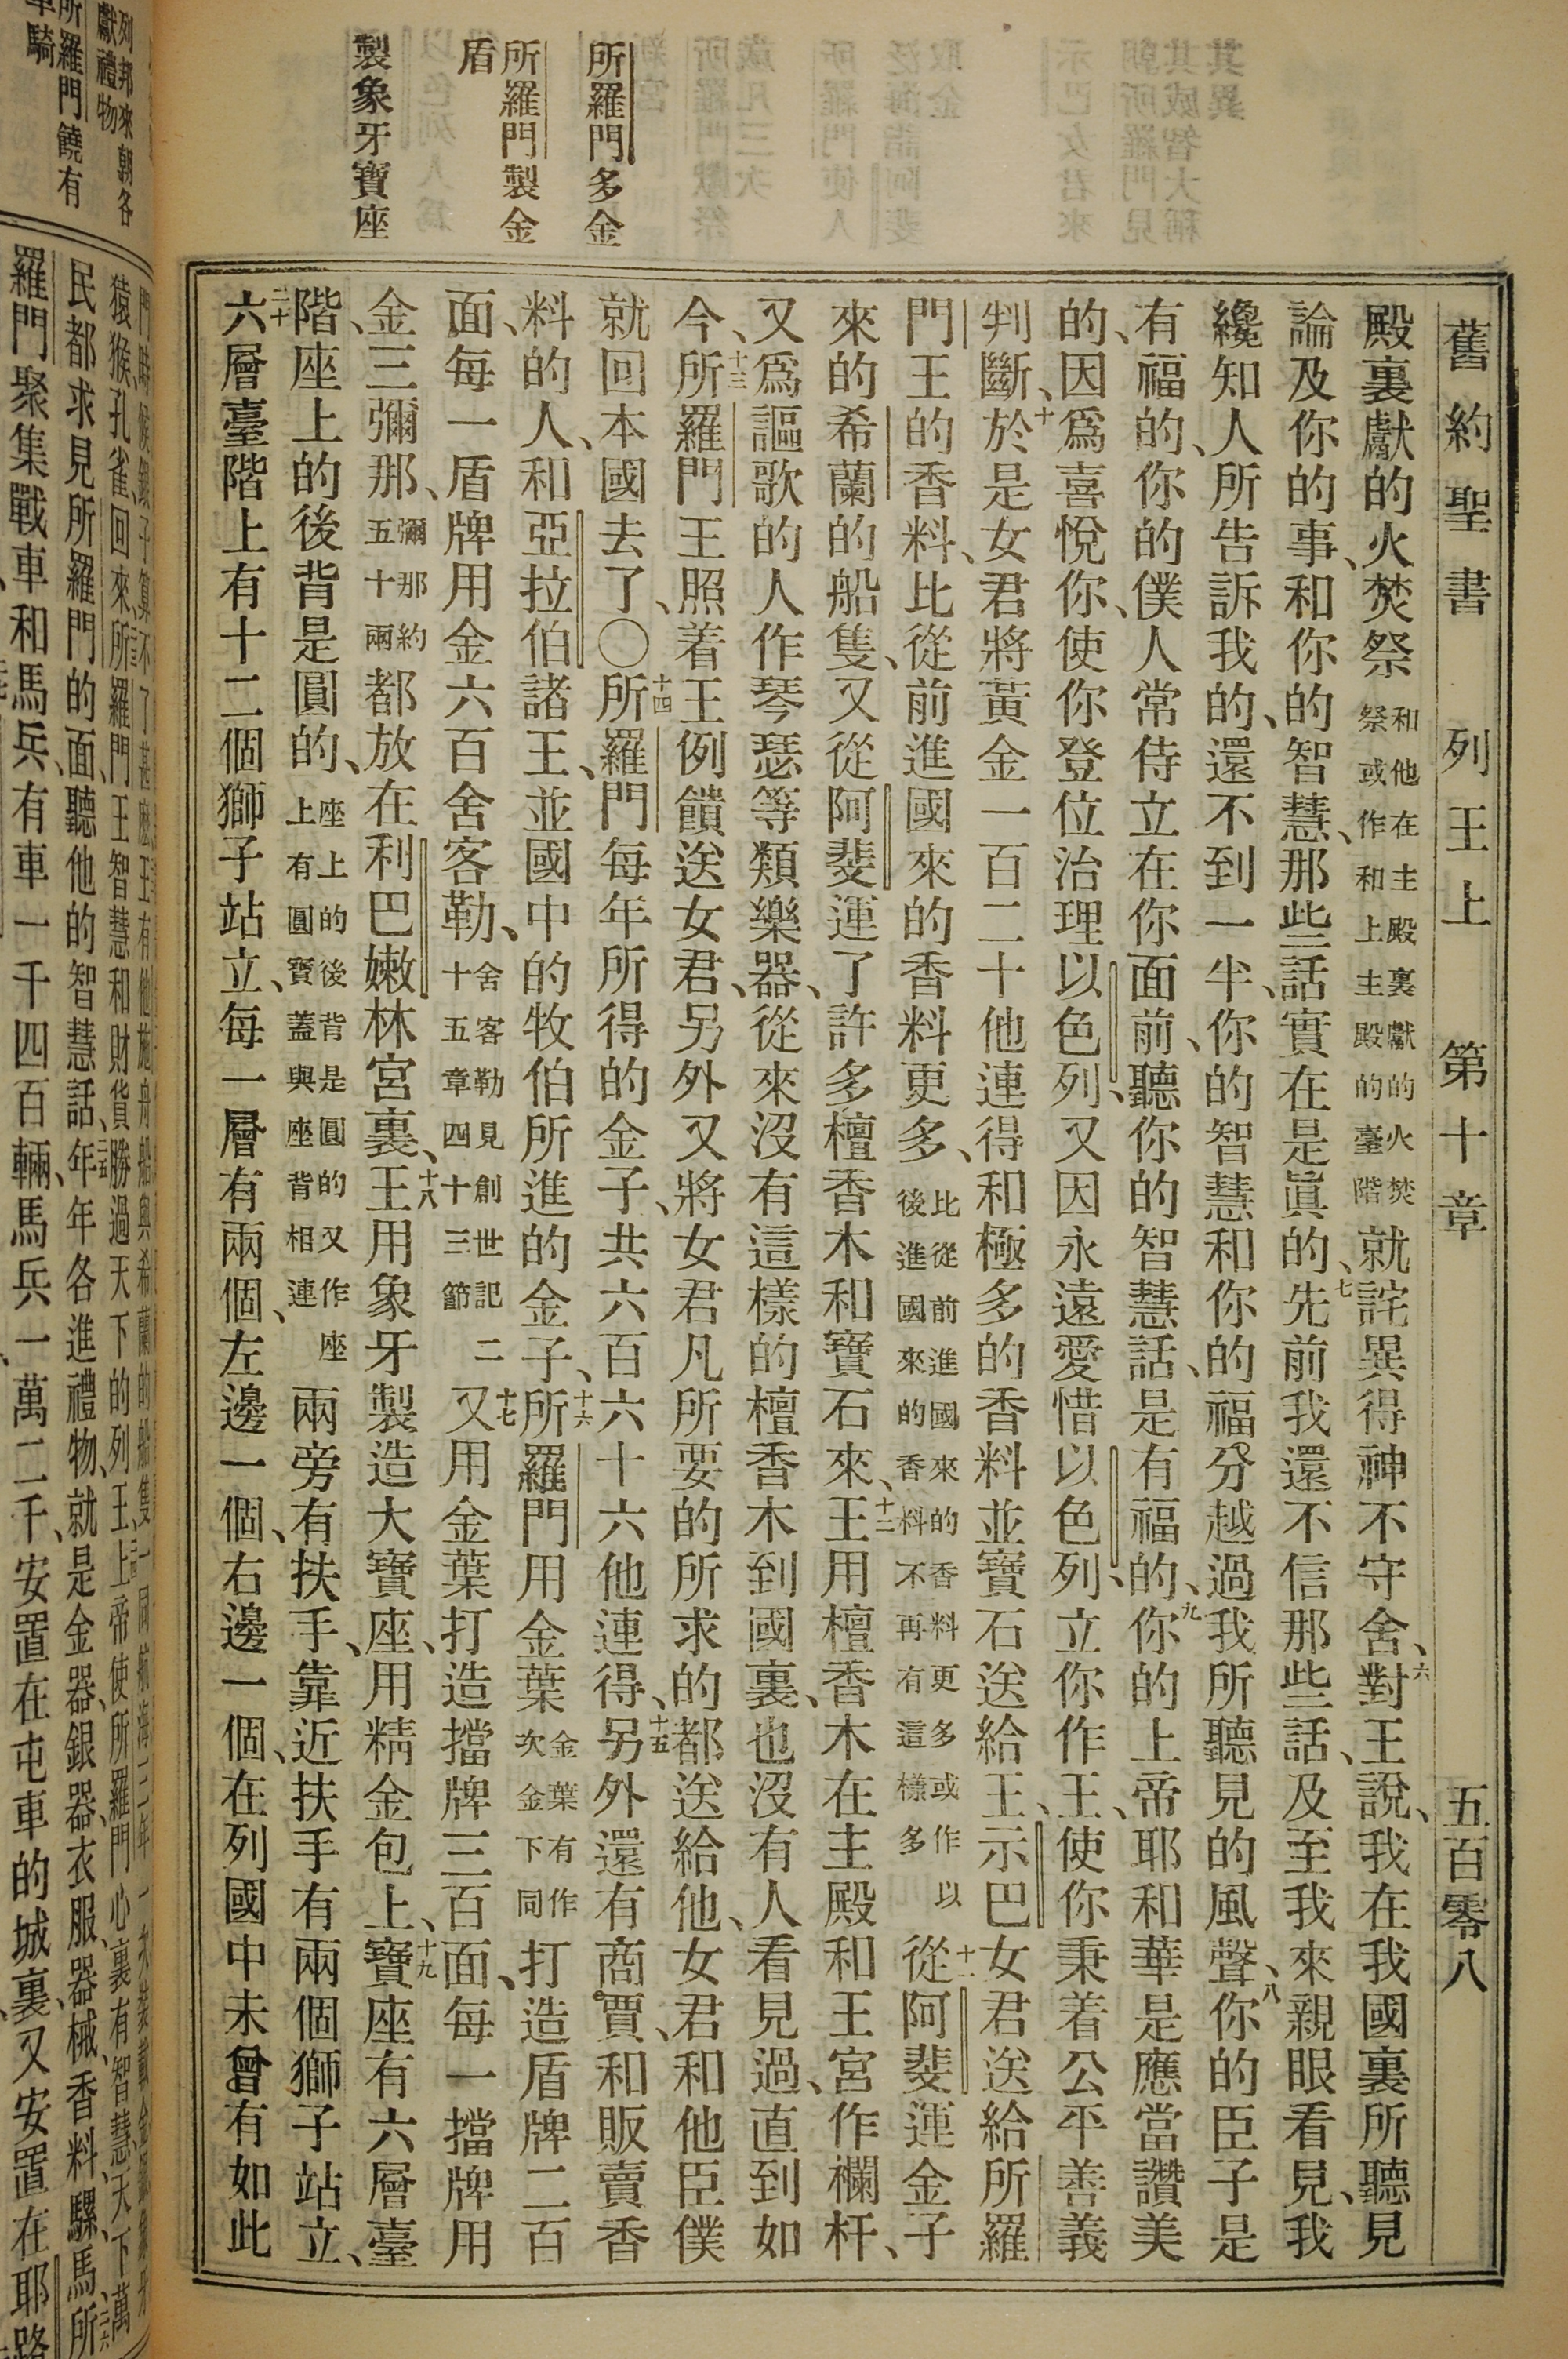 舊約聖書 列王上 第十章 五百零八
所羅門多金
所羅門製金
盾
製象牙寶座
殿裏獻的火焚祭和他在主殿裏獻的火焚祭或作和上主殿的臺階就詫異得神不守舍、六對王說、我在我國裏所聽見
論及你的事、和你的智慧、那些話實在是眞的、七先前我還不信那些話、及至我來親眼看見、我
纔知人所告訴我的、還不到一半、你的智慧和你的福分越過我所聽見的風聲、八你的臣子是
有福的、你的僕人常侍立在你面前、聽你的智慧話、是有福的、九你的上帝耶和華是應當讚美
的、因爲喜悅你、使你登位治理以色列、又因永遠愛惜以色列、立你作王、使你秉着公平善義
判斷、十於是女君將黃金一百二十他連得和極多的香料並寶石送給王、示巴女君送給所羅
門王的香料、比從前進國來的香料更多、比從前進國來的香料更多或作以後進國來的香料不再有這樣多十一從阿斐運金子
來的希蘭的船隻、又從阿斐運了許多檀香木和寶石來、十二王用檀香木在主殿和王宮作欄杆、
又爲謳歌的人作琴瑟等類樂器、從來沒有這樣的檀香木到國裏、也沒有人看見過、直到如
今、十三所羅門王照着王例饋送女君、另外又將女君凡所要的所求的都送給他、女君和他臣僕
就回本國去了、〇十四所羅門每年所得的金子、共六百六十六他連得、十五另外還有商賈、和販賣香
料的人、和亞拉伯諸王、並國中的牧伯所進的金子、十六所羅門用金葉金葉有作次金下同打造盾牌二百
面、每一盾牌用金六百舍客勒、舍客勒見創世記二十五章四十三節十七又用金葉打造擋牌三百面、每一擋牌用
金三彌那、彌那約五十兩都放在利巴嫩林宮裏、十八王用象牙製造大寶座、用精金包上、十九寶座有六層臺
階、座上的後背是圓的、座上的後背是圓的又作座上有圓寶蓋與座背相連兩旁有扶手、靠近扶手有兩個獅子站立、
二十六層臺階上有十二個獅子站立、每一層有兩個、左邊一個、右邊一個、在列國中未曾有如此
列邦來朝各
獻禮物
所羅門饒有
車騎
猿猴、孔雀、回來、所羅門王智慧和財貨、勝過天下的列王、上帝使所羅門心裏有智慧、天下萬
民都求見所羅門的面、聽他的智慧話、年年各進禮物、就是金器、銀器、衣服、器械、香料、騾馬、所
羅門聚集戰車和馬兵、有車一千四百輛、馬兵一萬二千、安置在屯車的城裏、又安置在耶路